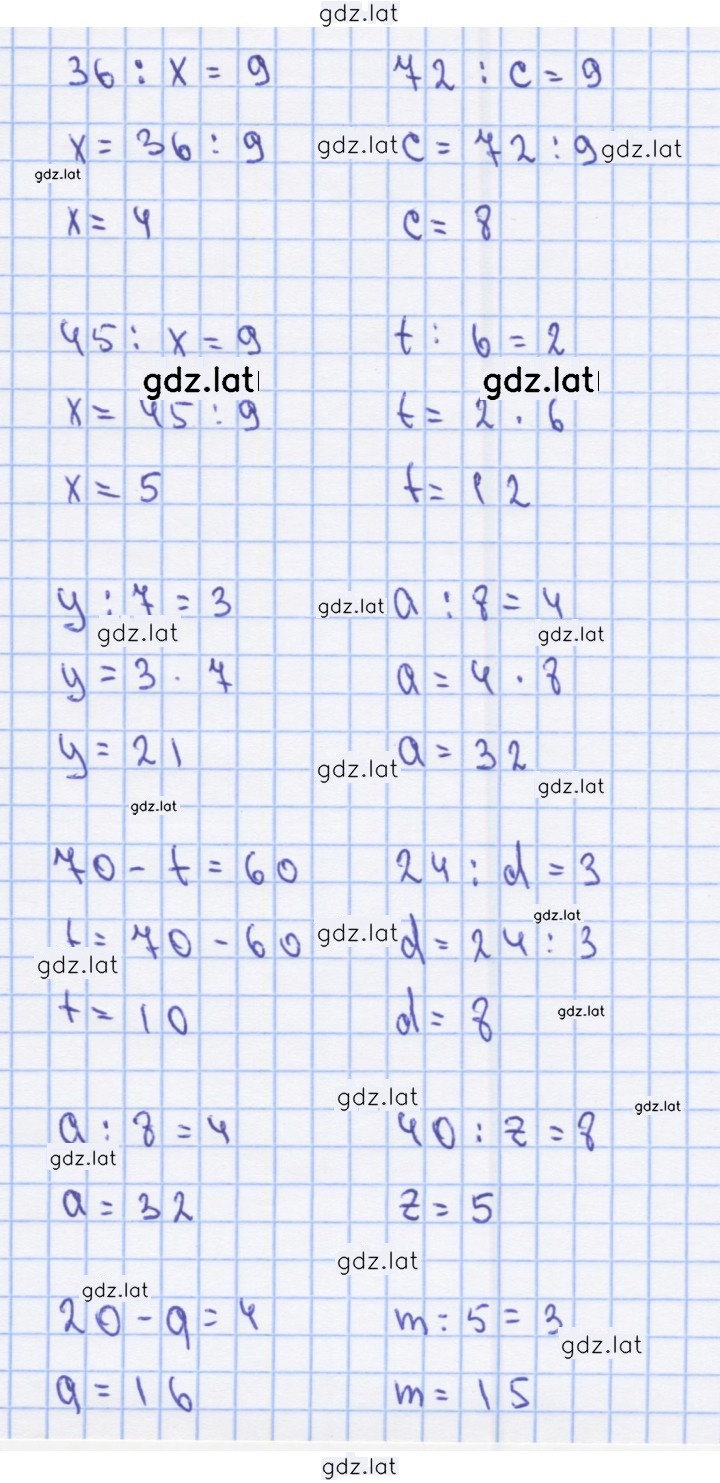 gdz.lat
36 : x = 9
72 : c = 9
x = 36 : 9
gdz.lat c = 72 : 9 gdz.lat
gdz.lat
x = 4
c = 8
45 : x = 9
t : 6 = 2
gdz.lat
gdz.lat
x = 45 : 9
t = 2 · 6
x = 5
t = 12
y : 7 = 3
gdz.lat a : 8 = 4
gdz.lat
gdz.lat
y = 3 · 7
a = 4 · 8
y = 21
gdz.lat a = 32
gdz.lat
gdz.lat
70 - t = 60
24 : d = 3
gdz.lat
t = 70 - 60
gdz.lat d = 24 : 3
gdz.lat
t = 10
d = 8
gdz.lat
gdz.lat
gdz.lat
a : 8 = 4
40 : z = 8
gdz.lat
a = 32
z = 5
gdz.lat
gdz.lat
20 - a = 4
m : 5 = 3
gdz.lat
a = 16
m = 15
gdz.lat